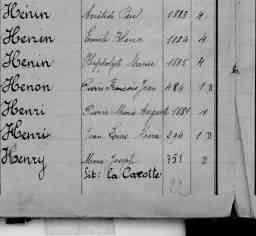 Hénin Aristide Paul 1883 4
Henin Emile Henri 1884 4
Henin Hippolyte Marie 1885 4
Henon Pierre François Jean 484 1 D
Henri Pierre Marie Auguste 1881 1
Henri Jean Louis Marie 200 1 D
Henry Marie Joseph 751 2
dit: La Carotte
22